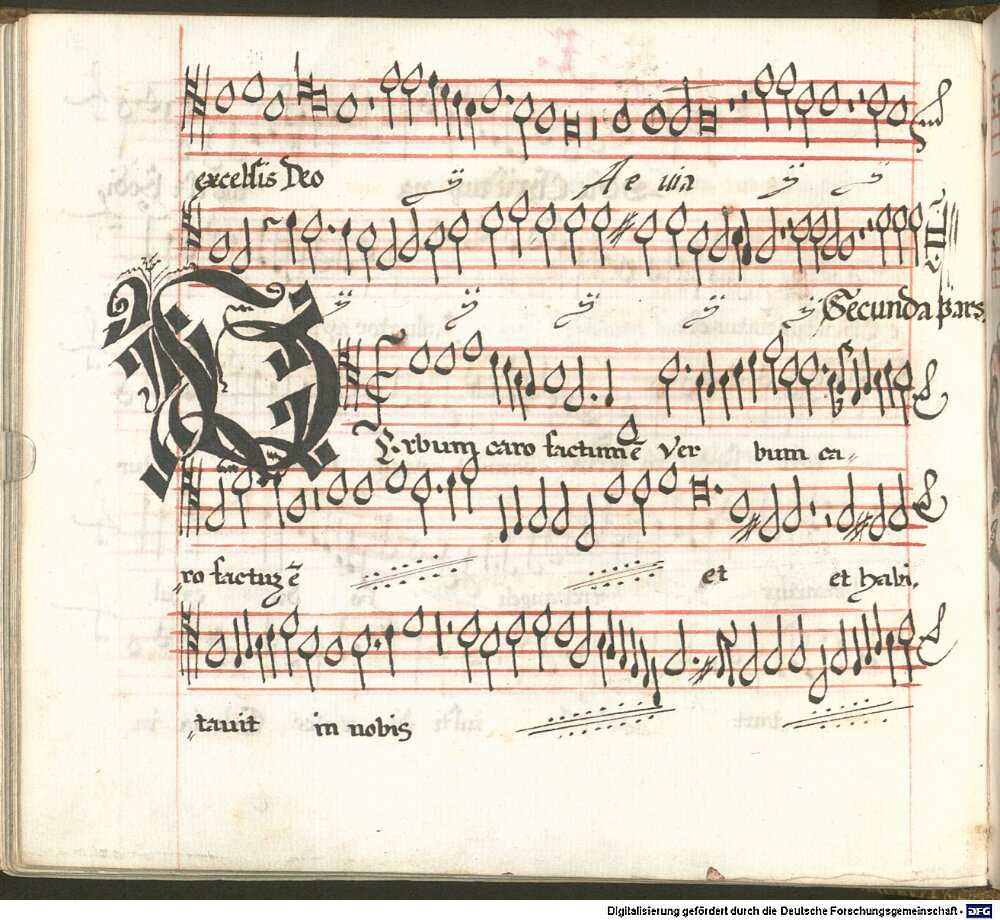 excelsis Deo ij Ae uia ij ij
ij ij ij ij ij Secunda pars
Verbum caro factum ē Ver bum ca-
ro factuʒ ē et et habi-
tauit in nobis
Digitalisierung gefördert durch die Deutsche Forschungsgemeinschaft - DFG